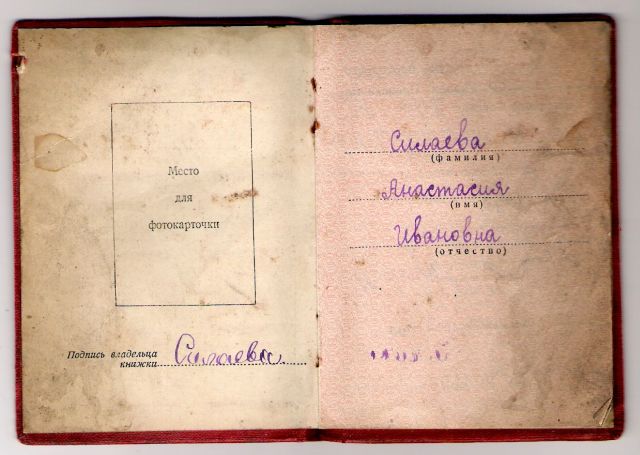 Место
для
фотокарточки
Подпись владельца
книжки Силаева
Силаева
(фамилия)
Анастасия
(имя)
Ивановна
(отчество)